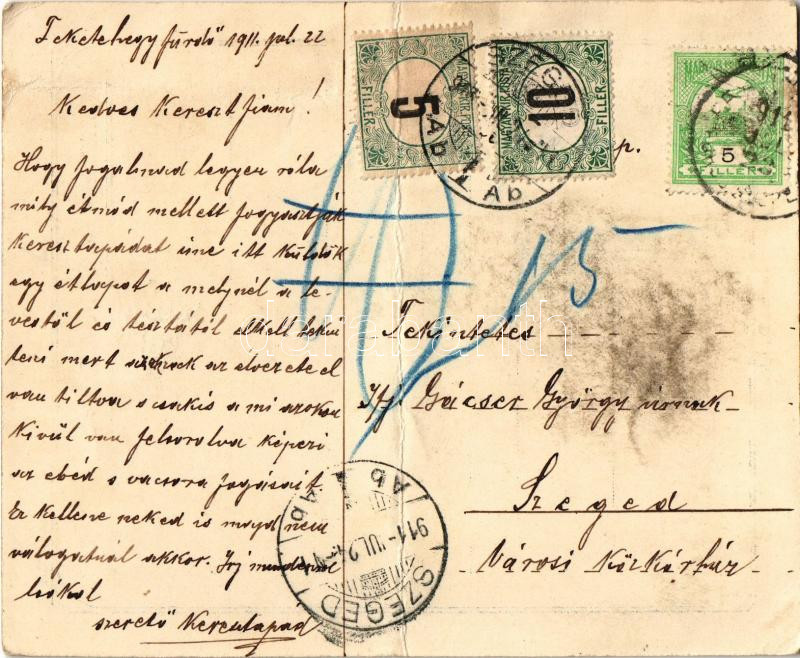 Feketehegy fürdő 1911. jul. 22
Kedves Keresztfiam!
Hogy fogalmad legyen róla
mily étmód mellett fogyasztják
Keresztapádat íme itt küldök
egy étlapot a melynél a le-
vestől és tésztától el kell tekin
teni mert ezeknek az élvezetével
van tiltva s csakis a mi azokon
kívül van felsorolva képezi
az ebéd s vacsora fogásait.
Ez kellene neked is majd nem
válogatnál akkor. Írj mindenről
szerető Keresztapád
5
FILLÉR
10
FILLÉR
MAGYAR KIR. POSTA
5
FILLÉR
Ab
Ab
p.
15
Tekintetes
Ifj Gácser György úrnak
Szeged
Városi Közkórház
SZEGED
911 JUL. 24
Ab
Ab
darabanth